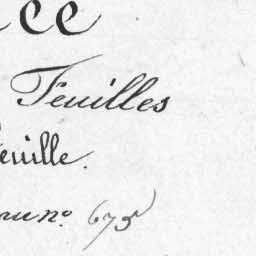 ce
Feuilles
feuille.
au no. 675